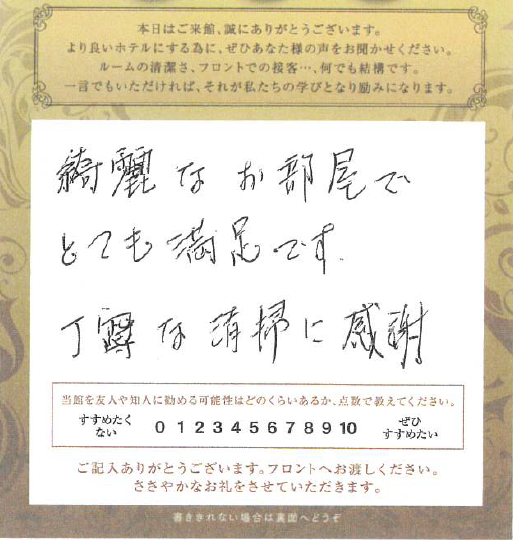 本日はご来館、誠にありがとうございます。
より良いホテルにする為に、ぜひあなた様の声をお聞かせください。
ルームの清潔さ、フロントでの接客…、何でも結構です。
一言でもいただければ、それが私たちの学びとなり励みになります。
綺麗なお部屋で
とても満足です.
丁寧な清掃に感謝
当館を友人や知人に勧める可能性はどのくらいあるか、点数で教えてください。
すすめたくない 0 1 2 3 4 5 6 7 8 9 10 ぜひすすめたい
ご記入ありがとうございます。フロントへお渡しください。
ささやかなお礼をさせていただきます。
書ききれない場合は裏面へどうぞ